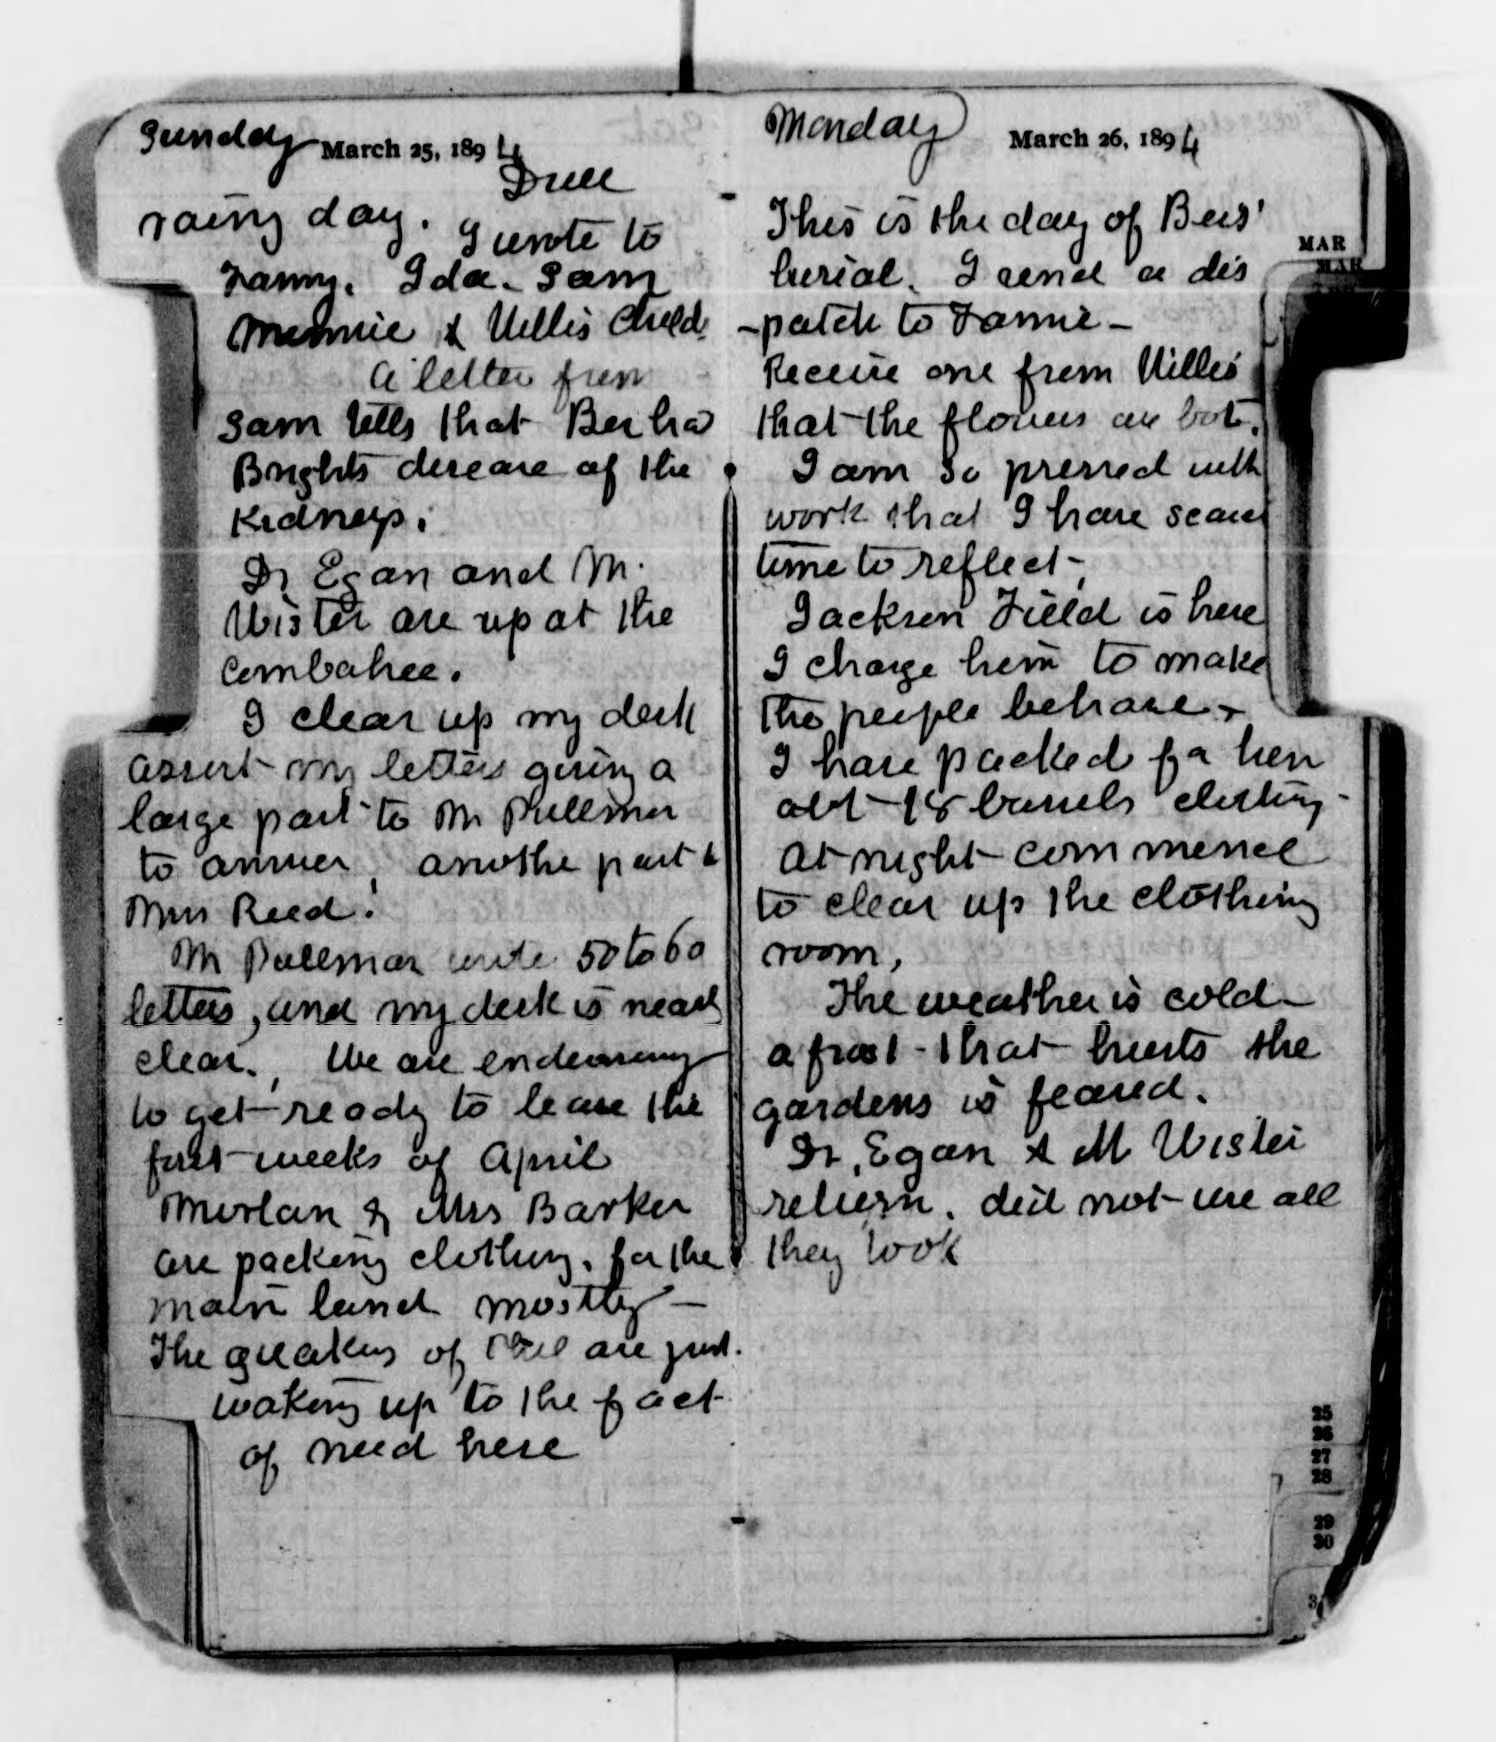 Sunday March 25, 1894
Dull
rainy day. I wrote to
Fanny. Ida. Sam
Minnie & Willis Child.
A letter from
Sam tells that Ber has
Brights disease of the
Kidneys.
Dr Egan and M.
Wister are up at the
Combahee.
I clear up my desk
assort my letters giving a
large part to Mr Pullman
to answer, anothe part to
Mrs Reed.
Mr Pullman wrote 50 to 60
letters, and my desk is nearly
clear. We are endeavoring
to get ready to leave the
first weeks of April
Morlan & Mrs Barker
are packing clothing, for the
main land mostly -
The quakers of Phil are just
waking up to the fact
of need here
Monday March 26, 1894
This is the day of Bers'
burial. I send a dis
-patch to Fannie -
Receive one from Willis
that the flowers are bot.
I am so pressed with
work that I have scarce
time to reflect -
Jackson Field is here
I charge him to make
the people behave -
I have packed for him
abt 18 barrels clothing -
At night commence
to clear up the clothing
room,
The weather is cold -
a frost - that hurts the
gardens is feared.
Dr. Egan & M Wister
return. did not use all
they took
MAR
MAR
25
26
27
28
29
30